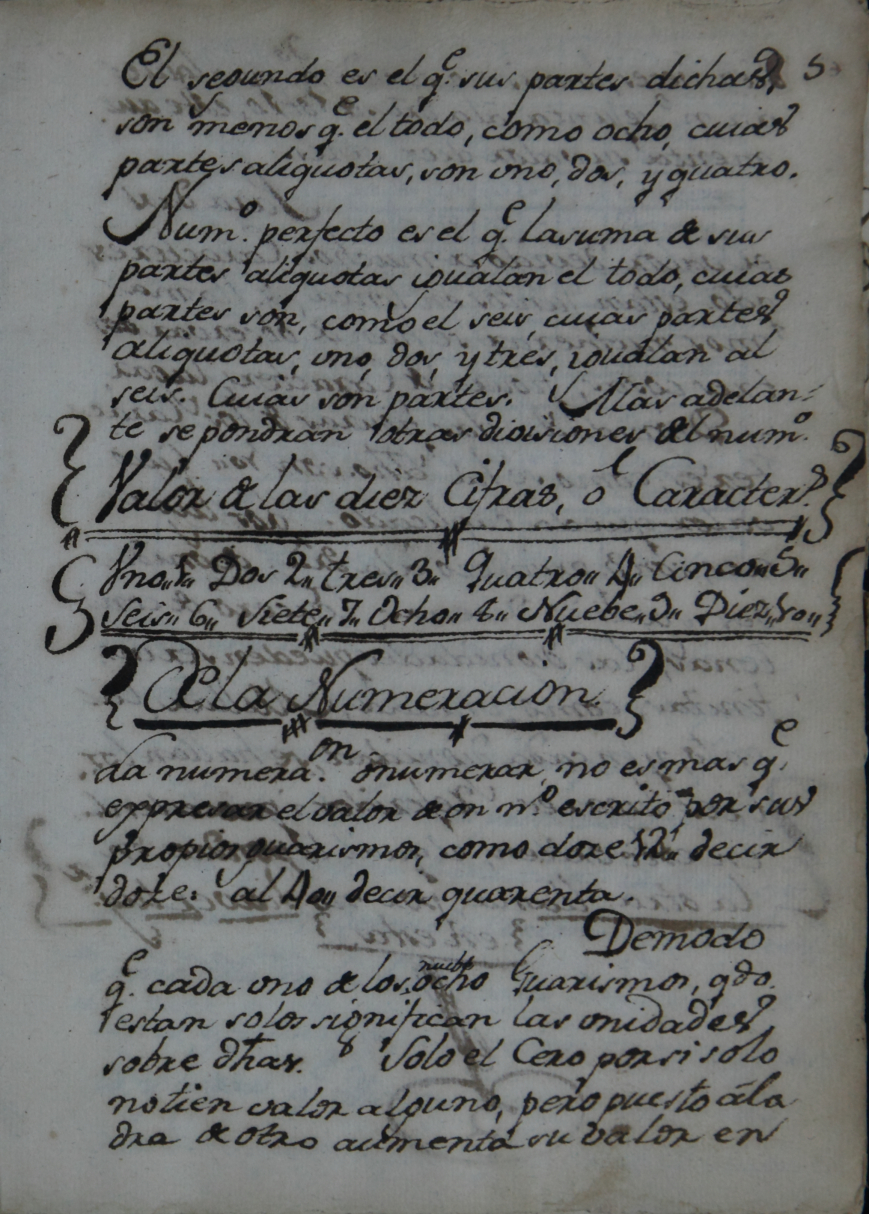 El segundo es el q.e sus partes dichas, 5
son menos q.e el todo, como ocho, cuias
partes aliquotas, son uno, dos, y quatro.
Num.o perfecto es el q.e la suma de sus
partes aliquotas igualan el todo, cuias
partes son, como el seis, cuias partes
aliquotas, uno, dos, y tres, igualan al
seis. Cuias son partes. Mas adelan-
te se pondran otras divisiones del num.o
Valor de las diez Cifras, o Caracter.s
Vno,, 1,, Dos 2,, tres,, 3,, Quatro,, 4,, Cinco,, 5,,
Seis,, 6,, Siete,, 7,, Ocho,, 8,, Nuebe,, 9,, Diez,, 10,,
De la Numeracion
La numera.on o numerar, no es mas q.e
expresar el valor de un n.o escrito por sus
propios guarismos, como doze 12,, decir
doze: al 40,, decir quarenta.
Demodo
q.e cada uno de los nuebe ocho Guarismos, qdo.
estan solos significan las unidades
sobre dhas. Solo el Cero por si solo
no tien valor alguno, pero puesto á la
dra de otro aumenta su valor en